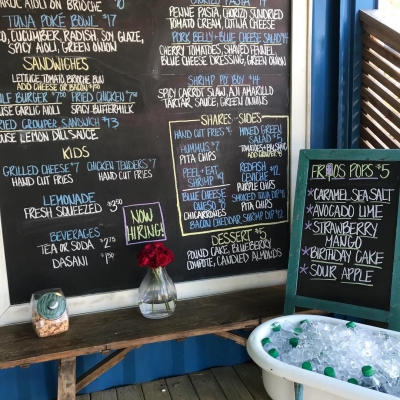 TUNA POKE BOWL $17
CUCUMBER, RADISH, SOY GLAZE,
SPICY AIOLI, GREEN ONION
SANDWICHES
LETTUCE TOMATO BRIOCHE BUN
ADD CHEESE OR BACON
BURGER FRIED CHICKEN
GARLIC AIOLI SPICY BUTTERMILK
GROUPER SANDWICH $13
HOUSE LEMON DILL SAUCE
KIDS
GRILLED CHEESE $7 CHICKEN TENDERS $7
HAND CUT FRIES HAND CUT FRIES
LEMONADE
FRESH SQUEEZED
BEVERAGES
TEA OR SODA $2.75
DASANI
NOW
HIRING!
PENNE PASTA, CHORIZO SUNDRIED
TOMATO CREAM, COTIJA CHEESE
PORK BELLY + BLUE CHEESE SALAD
CHERRY TOMATOES, SHAVED FENNEL,
BLUE CHEESE DRESSING, GREEN ONION
SHRIMP PO' BOY $14
SPICY CARROT SLAW, AJI AMARILLO
TARTAR SAUCE, GREEN ONIONS
SHARES + SIDES
HAND CUT FRIES
HUMMUS $7
PITA CHIPS
PEEL + EAT
SHRIMP
BLUE CHEESE
CHICARRONES
MIXED GREEN
SALAD
ADD GROUPER
PURPLE CHIPS
SMOKED TUNA DIP
PITA CHIPS
BACON CHEDDAR SHRIMP DIP
DESSERT $5
POUND CAKE, BLUEBERRY
COMPOTE, CANDIED ALMONDS
POPS $5
*CARAMEL SEA SALT
*AVOCADO LIME
*STRAWBERRY
MANGO
*BIRTHDAY CAKE
*SOUR APPLE